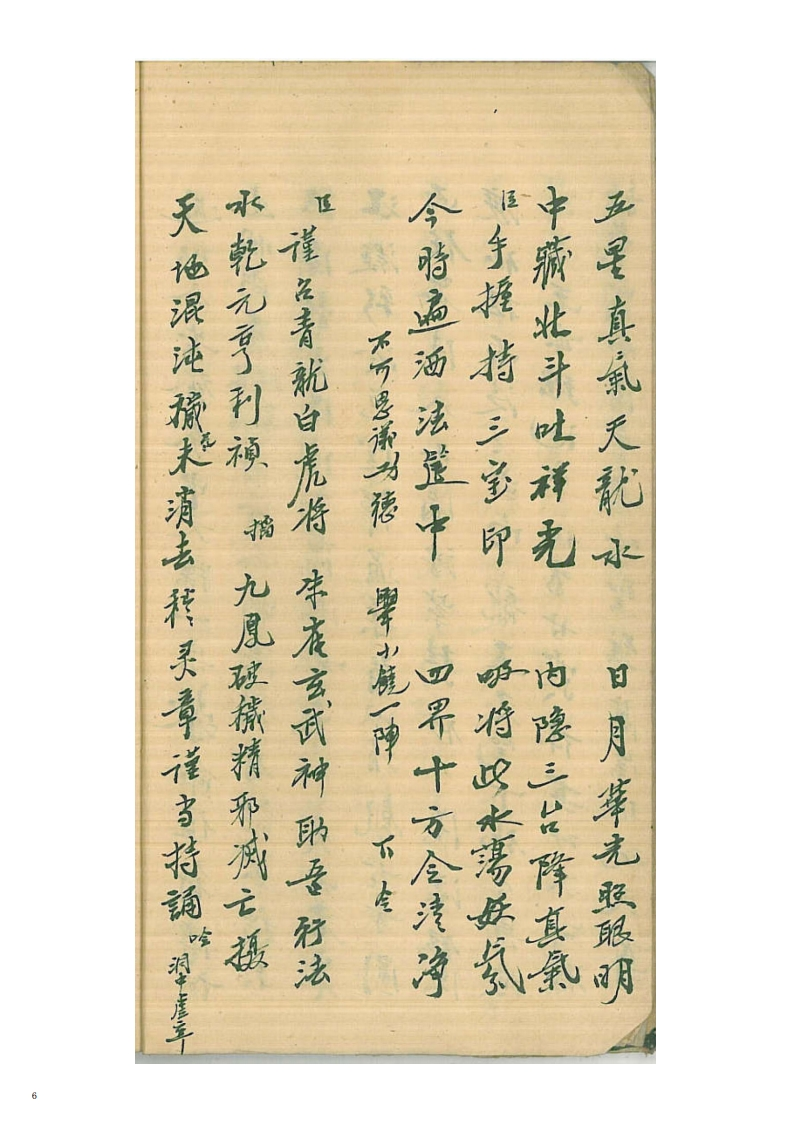 五星真氣天龍水 日月華光照眼明
中藏北斗吐祥光 內隐三台降真氣
臣手握持三宝印 吸将此水蕩妖氛
今時遍洒法筵中 四界十方令清净
不可思議功德 舉小鐃一陣 下令
臣謹召青龍白虎将 朱雀玄武神助吾行法
水乾元亨利禎 搖 九鳳破穢精邪滅亡摄
天地混沌穢炁未消去 灵章謹当持誦 唅洞中虚章
6